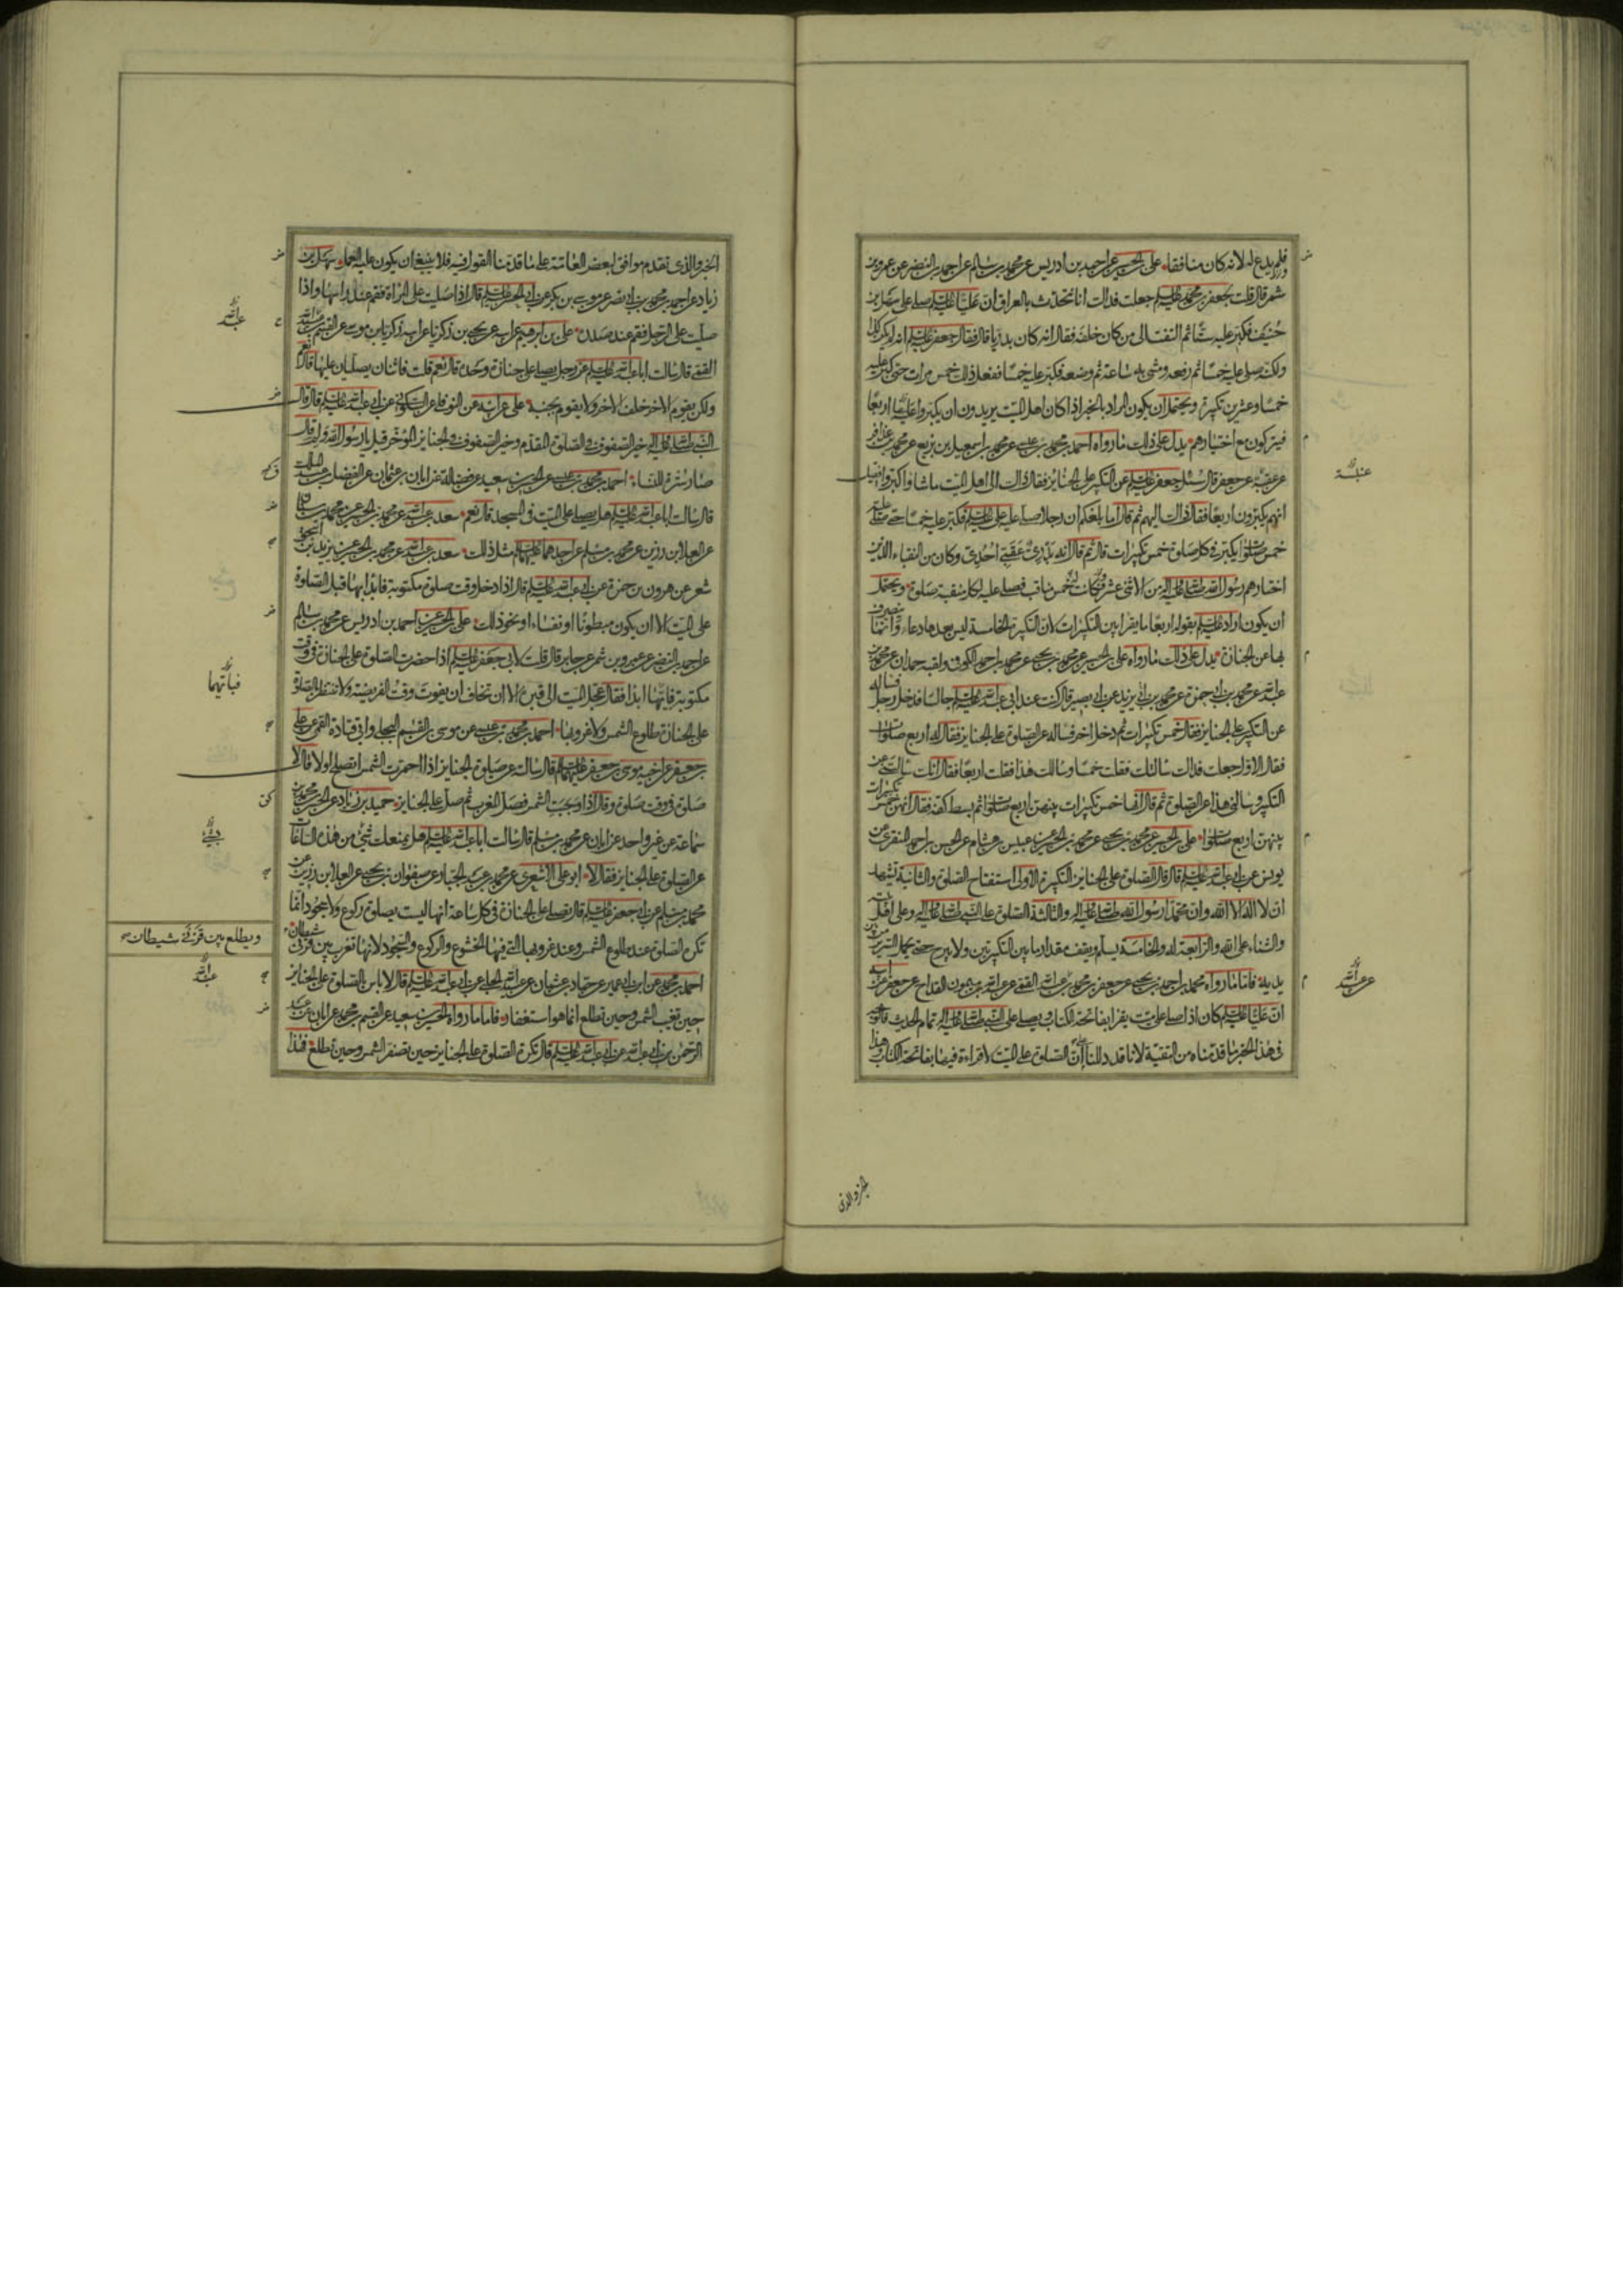 فلم يدع له لانه كان منافقا علي بن الحسين عن احمد بن ادريس عن محمد بن سالم عن احمد بن النضر عن عمرو بن
شمر قال قلت لجعفر بن محمد عليه السلام جعلت فداك انا نتحدث بالعراق ان عليا عليه السلام صلى على سهل بن
حنيف فكبر عليه ستا ثم التفت الى من كان خلفه فقال انه كان بدريا قال فقال جعفر عليه السلام انه لم يكن كذا
ولكنه صلى عليه خمسا ثم رفعه ومشى به ساعة ثم وضعه فكبر عليه خمسا ففعل ذلك خمس مرات حتى كبر عليه
خمسا وعشرين تكبيرة ويحتمل ان يكون المراد بالخبر اذا كان اهل الميت يريدون ان يكبروا عليه اربعا
فيتركون مع اختيارهم يدل على ذلك ما رواه احمد بن محمد بن عيسى عن محمد بن اسمعيل بن بزيع عن محمد بن عذافر
عن عقبة عن جعفر قال سئل جعفر عليه السلام عن التكبير على الجنايز فقال ذاك الى اهل الميت ما شاؤا كبروا فقيل
انهم يكبرون اربعا فقال ذاك اليهم ثم قال اما بلغكم ان رجلا صلى عليه علي عليه السلام فكبر عليه خمسا حتى صلى عليه
خمس صلوات يكبر في كل صلوة خمس تكبيرات قال ثم قال انه بدري عقبي احدي وكان من النقباء الذين
اختارهم رسول الله صلى الله عليه واله من الاثنى عشر وكانت له خمس مناقب فصلى عليه لكل منقبة صلوة ويحتمل
ان يكون اراد عليه السلام بقوله اربعا ما يقرا بين التكبيرات لان التكبيرة الخامسة ليس بعدها دعاء وانما ينصرف
بها عن الجنازة يدل على ذلك ما رواه علي بن الحسين عن محمد بن يحيى عن محمد بن احمد الكوفي ولقبه حمدان عن محمد بن
عبد الله عن محمد بن ابي حمزة عن محمد بن ابي يزيد عن ابي بصير قال كنت عند ابي عبد الله عليه السلام جالسا فدخل رجل فساله
عن التكبير على الجنايز فقال خمس تكبيرات ثم دخل اخر فساله عن الصلوة على الجنايز فقال له اربع صلوات
فقال الاول جعلت فداك سالتك فقلت خمسا وسالك هذا فقلت اربعا فقال انك سالتني عن
التكبير وسالني هذا عن الصلوة ثم قال انها خمس تكبيرات بينهن اربع صلوات ثم بسط كفه فقال انهن خمس تكبيرات
بينهن اربع صلوات علي بن الحسين عن محمد بن يحيى عن محمد بن عبيس هشام عن الحسن بن احمد المنقري عن
يونس عن ابي عبد الله عليه السلام قال قال الصلوة على الجنايز التكبيرة الاولى استفتاح الصلوة والثانية تشهد
ان لا اله الا الله وان محمدا رسول الله صلى الله عليه واله والثالثة الصلوة على النبي صلى الله عليه واله وعلى اهل بيته
والثناء على الله والرابعة له والخامسة يسلم ويقف مقدار ما بين التكبيرتين ولا يبرح حتى يحمل السرير من بين
يديه فاما ما رواه محمد بن احمد بن يحيى عن جعفر بن محمد بن عبد الله القمي عن عبد الله بن ميمون القداح عن جعفر عن ابيه
ان عليا عليه السلام كان اذا صلى على ميت يقرا بفاتحة الكتاب ويصلي على النبي صلى الله عليه واله تمام الحديث فالوجه
في هذا الخبر ما قدمناه من التقية لانا قد دللنا ان الصلوة على الميت لا قراءة فيها بفاتحة الكتاب وهذا
عنبسة
عن عبد الله
الخبر والذي
الخبر والذي تقدم موافق لبعض العامة على ما قدمنا القول فيه فلا ينبغي ان يكون عليه العمل سهل بن
زياد عن احمد بن محمد بن ابي نصر عن موسى بن بكر عن ابي الحسن عليه السلام قال اذا صليت على المراة فقم عند راسها واذا
صليت على الرجل فقم عند صدره علي بن ابرهيم عن ابيه عن يحيى بن زكريا عن ابيه زكريا بن موسى عن القسم بن عبيد الله
القمي قال سالت ابا عبد الله عليه السلام عن رجل يصلي على جنازة وحده قال نعم قلت فاثنان يصليان عليها قال نعم
ولكن يقوم الاخر خلف الاخر ولا يقوم بجنبه علي عن ابيه عن النوفلي عن السكوني عن ابي عبد الله عليه السلام قال قال
النبي صلى الله عليه واله خير الصفوف في الصلوة المقدم وخير الصفوف في الجنايز المؤخر قيل يا رسول الله ولم قال
صار سترة للنساء احمد بن محمد بن عيسى عن الحسين بن سعيد عن فضالة عن ابان بن عثمان عن الفضل بن عبد الملك
قال سالت ابا عبد الله عليه السلام هل يصلى على الميت في المسجد قال نعم سعد بن عبد الله عن محمد بن الحسين عن محمد بن سنان
عن العلا بن رزين عن محمد بن مسلم عن احدهما عليهما السلام مثل ذلك سعد بن عبد الله عن محمد بن الحسين عن يزيد بن اسحق
شعر عن هرون بن حمزة عن ابي عبد الله عليه السلام قال اذا دخل وقت صلوة مكتوبة فابدا بها قبل الصلوة
على الميت الا ان يكون مبطونا او نفساء او نحو ذلك علي بن الحسين عن احمد بن ادريس عن محمد بن سالم
عن احمد بن النضر عن عمرو بن شمر عن جابر قال قلت لابي جعفر عليه السلام اذا حضرت الصلوة على الجنازة في وقت
مكتوبة فايها ابدا فقال عجل الميت الى قبره الا ان تخاف ان يفوت وقت الفريضة ولا تنتظر بالصلوة
على الجنازة طلوع الشمس ولا غروبها احمد بن محمد بن عيسى عن موسى بن القسم البجلي وابي قتادة القمي عن علي
بن جعفر عن اخيه موسى بن جعفر عليهما السلام قال سالته عن صلوة الجنايز اذا احمرت الشمس ايصلح او لا قال لا
صلوة في وقت صلوة وقال اذا وجبت الشمس فصل المغرب ثم صل على الجنايز حميد بن زياد عن الحسن بن محمد بن
سماعة عن غير واحد عن ابان عن محمد بن مسلم قال سالت ابا عبد الله عليه السلام هل يمنعك شئ من هذه الساعات
عن الصلوة على الجنايز فقال لا ابو علي الاشعري عن محمد بن عبد الجبار عن صفوان بن يحيى عن العلا بن رزين عن
محمد بن مسلم عن ابي جعفر عليه السلام قال يصلى على الجنازة في كل ساعة انها ليست بصلوة ركوع ولا سجود انما
تكره الصلوة عند طلوع الشمس وعند غروبها التي فيها الخشوع والركوع والسجود لانها تغرب بين قرني شيطان
احمد بن محمد عن ابن ابي عمير عن حماد بن عثمان عن عبيد الله الحلبي عن ابي عبد الله عليه السلام قال لا باس بالصلوة على الجنايز
حين تغيب الشمس وحين تطلع انما هو استغفار فاما ما رواه الحسين بن سعيد عن القسم بن محمد عن ابان عن عبد
الرحمن بن ابي عبد الله عن ابي عبد الله عليه السلام قال تكره الصلوة على الجنايز حين تصفر الشمس وحين تطلع فهذا
عبد الله
فبايهما
ويطلع بين قرني شيطان
عبد الله